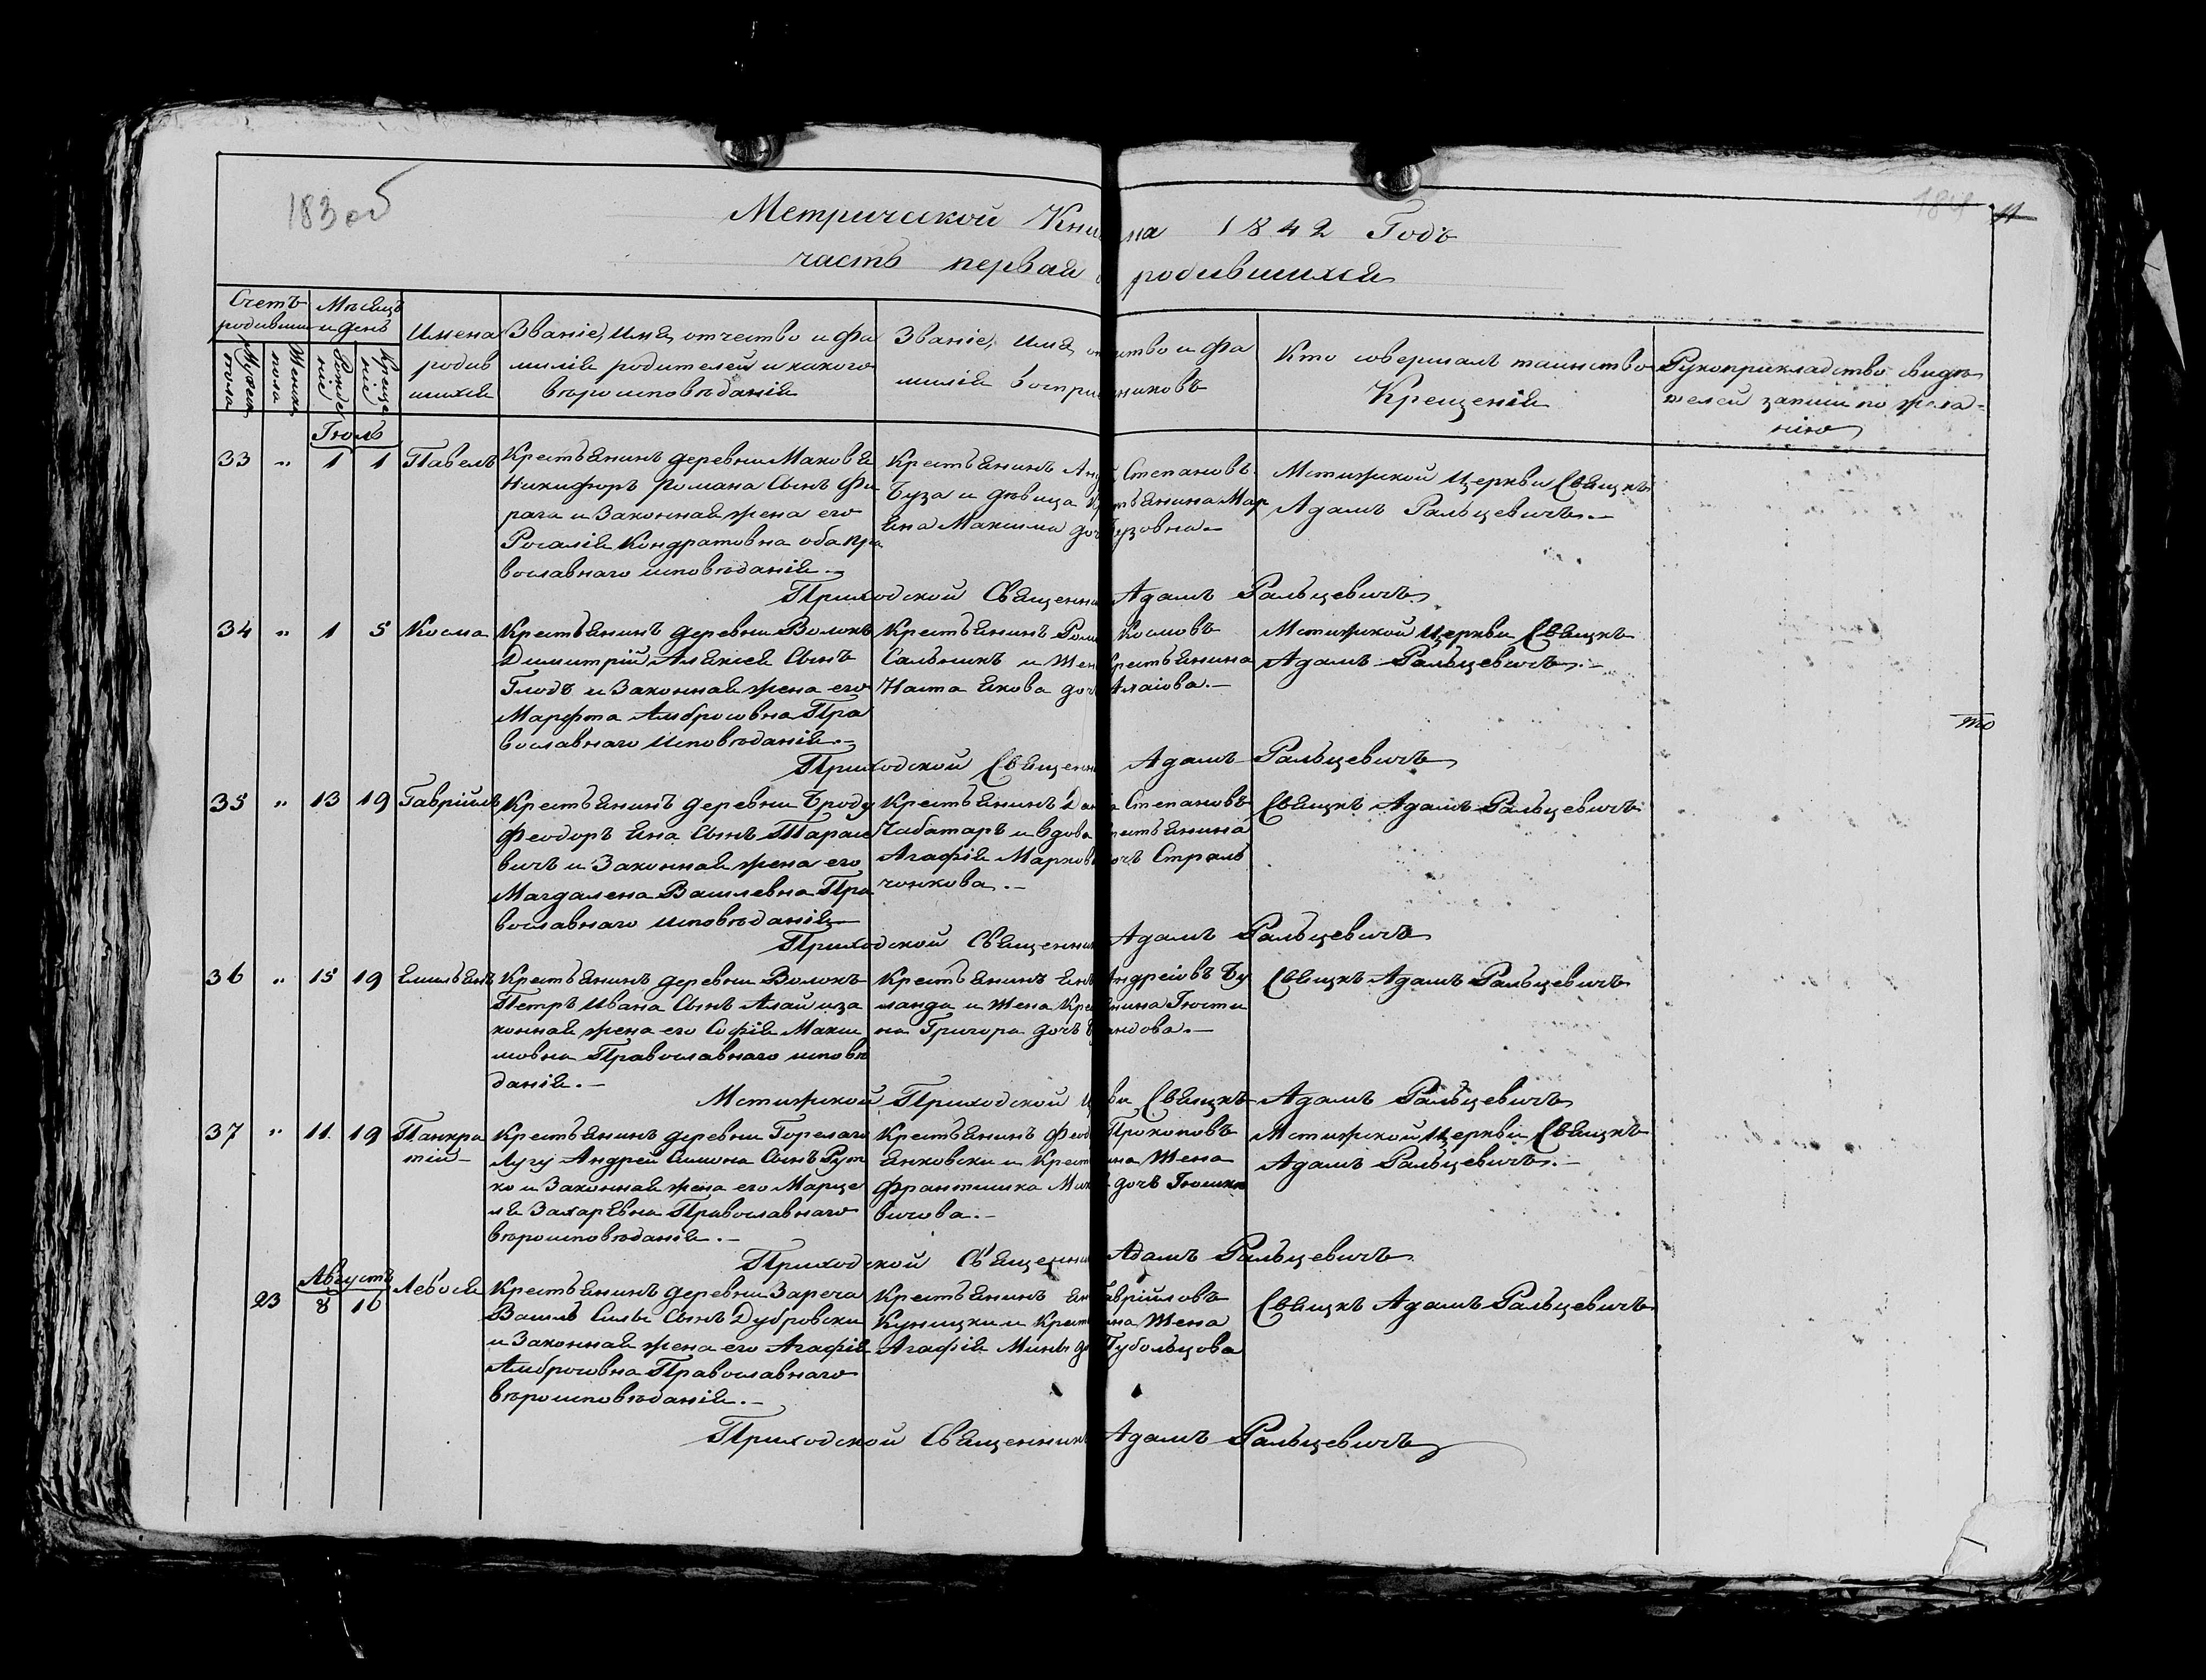 183 об
184
11
Метрической Книга 1842 Годъ
часть первая родившихся
Счетъ родивших
Мѣсяцъ и день
Мужеск пола
Женск пола
Рожде ніе
Креще ніе
Имена родив шихся
Званіе, Имя, отчество и фа
милія родителей и какого
вѣроисповѣданія
Званіе, Имя, отчество и фа
милія восприемниковъ
Кто совершалъ таинство
Крещенія
Рукоприкладство свидѣ
телей записи по жела=
нію
Іюль
33 " 1 1 Павелъ
Крестьянинъ деревни Маковья
Никифоръ Романа Сынъ Фи
рага и Законная жена его
Росалія Кондратовна оба пра
вославнаго исповѣданія.–
Крестьянинъ Степановъ
Буза и дѣвица Мар
яна Максима Бузовна.–
Мстижской Церкви Свящкъ
Адамъ Ральцевичъ.–
Приходской Священни Адамъ Ральцевичъ
34 " 1 5 Косма
Крестьянинъ деревни Волокъ
Димитрій Алексея Сынъ
Глодъ и Законная жена его
Марфта Амбросовна Пра
вославнаго Исповѣданія.–
Крестьянинъ Космовъ
Сальникъ и Жен крестьянина
Наста Якова доч Алаіова.–
Мстижской Церкви Свящкъ
Адамъ Ральцевичъ.–
Приходской Священни Адамъ Ральцевичъ
35 " 13 19 Гавріилъ
Крестьянинъ деревни Броду
Феодоръ Яна Сынъ Тарасе
вичъ и Законная жена его
Магдалена Василевна Пра
вославнаго исповѣданія
Крестьянинъ Степановъ
Чаботаръ и вдова крестьянина
Агафія Марков Страль
чонкова.–
Свящкъ Адамъ Ральцевичъ
Приходской Священник Адамъ Ральцевичъ
36 " 15 19 Емильянъ
Крестьянинъ деревни Волокъ
Петръ Ивана Сынъ Алай и за
конная жена его Софія Макси
мовна Православнаго исповѣ
данія.–
Крестьянинъ Андреіовъ Бу
ланда и Жена Кре нина Іюсти
на Григора дочъ андова.–
Свящкъ Адамъ Ральцевичъ
Мстижской Приходской Церкви Свящкъ Адамъ Ральцевичъ
37 " 11 19 Панкра тій
Крестьянинъ деревни Горелаго
Лугу Андрей Симона Сынъ Рут
ко и Законная жена его Марце
ля Захаревна Православнаго
вѣроисповѣданія.–
Крестьянинъ Феод Прокоповъ
Янковски и Крест ина Жена
Франтишка дочъ Іюшке
вичова.–
Мстижской Церкви Свящкъ
Адамъ Ральцевичъ.–
Приходской Священни Адамъ Ральцевичъ
Августъ
23 8 16 Лебося
Крестьянинъ деревни Заречя
Василь Сильи Сынъ Дубровски
и Законная жена его Агафія
Амбросовна Православнаго
вѣроисповѣданія.–
Крестьянинъ Гавріиловъ
Куницки и Крест ина Жена
Агафія Мины Губольцова
Свящкъ Адамъ Ральцевичъ
Приходской Священник Адамъ Ральцевичъ